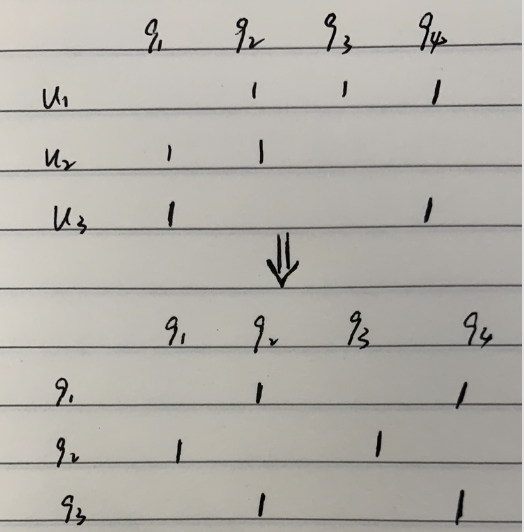 q₁ q₂ q₃ q₄
u₁ 1 1 1
u₂ 1 1
u₃ 1 1
⇓
q₁ q₂ q₃ q₄
q₁ 1 1
q₂ 1 1
q₃ 1 1